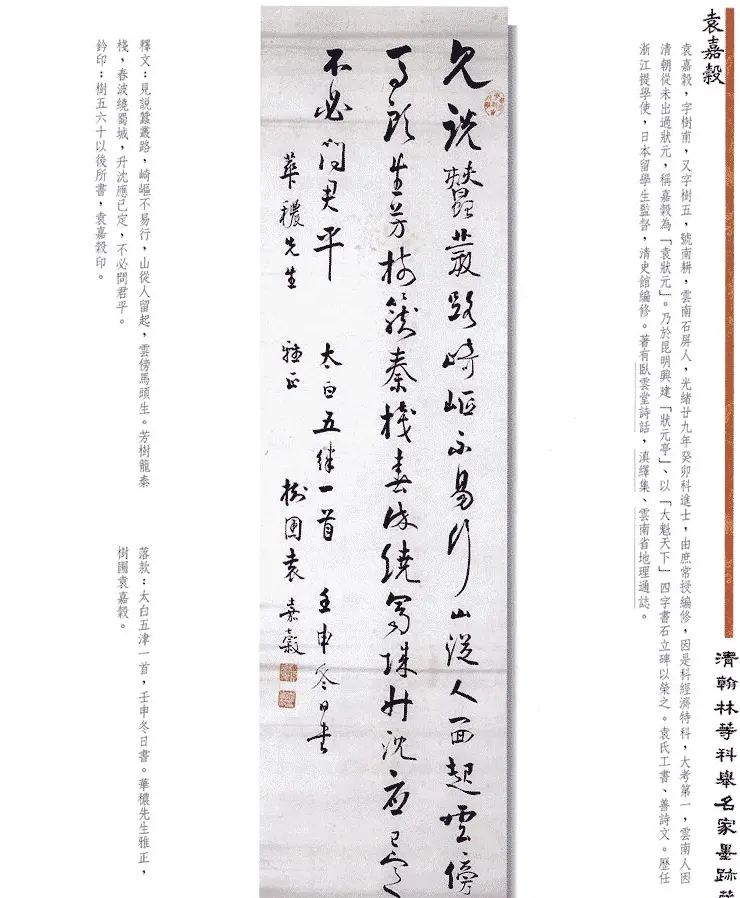 清翰林等科舉名家墨跡
袁嘉穀
袁嘉穀，字樹甫，又字樹五，號南耕，雲南石屏人，光緒廿九年癸卯科進士，由庶常授編修，因是科經濟特科，大考第一，雲南人因
清朝從未出過狀元，稱嘉穀為「袁狀元」。乃於昆明興建「狀元亭」、以「大魁天下」四字書石立碑以榮之。袁氏工書、善詩文。歷任
浙江提學使，日本留學生監督，清史館編修。著有臥雲堂詩話，滇繹集、雲南省地理通誌。
見說蠶叢路崎嶇不易行山從人面起雲傍
馬頭生芳樹籠秦棧春波繞蜀城升沈應已定
不必問君平 太白五律一首 壬申冬日書
華穠先生 雅正 樹圃袁嘉穀
釋文：見説蠶叢路，崎嶇不易行，山從人留起，雲傍馬頭生。芳樹龍秦
棧，春波繞蜀城，升沈應已定，不必問君平。
鈐印：樹五六十以後所書，袁嘉穀印。
落款：太白五津一首，壬申冬日書。華穠先生雅正，
樹圃袁嘉穀。